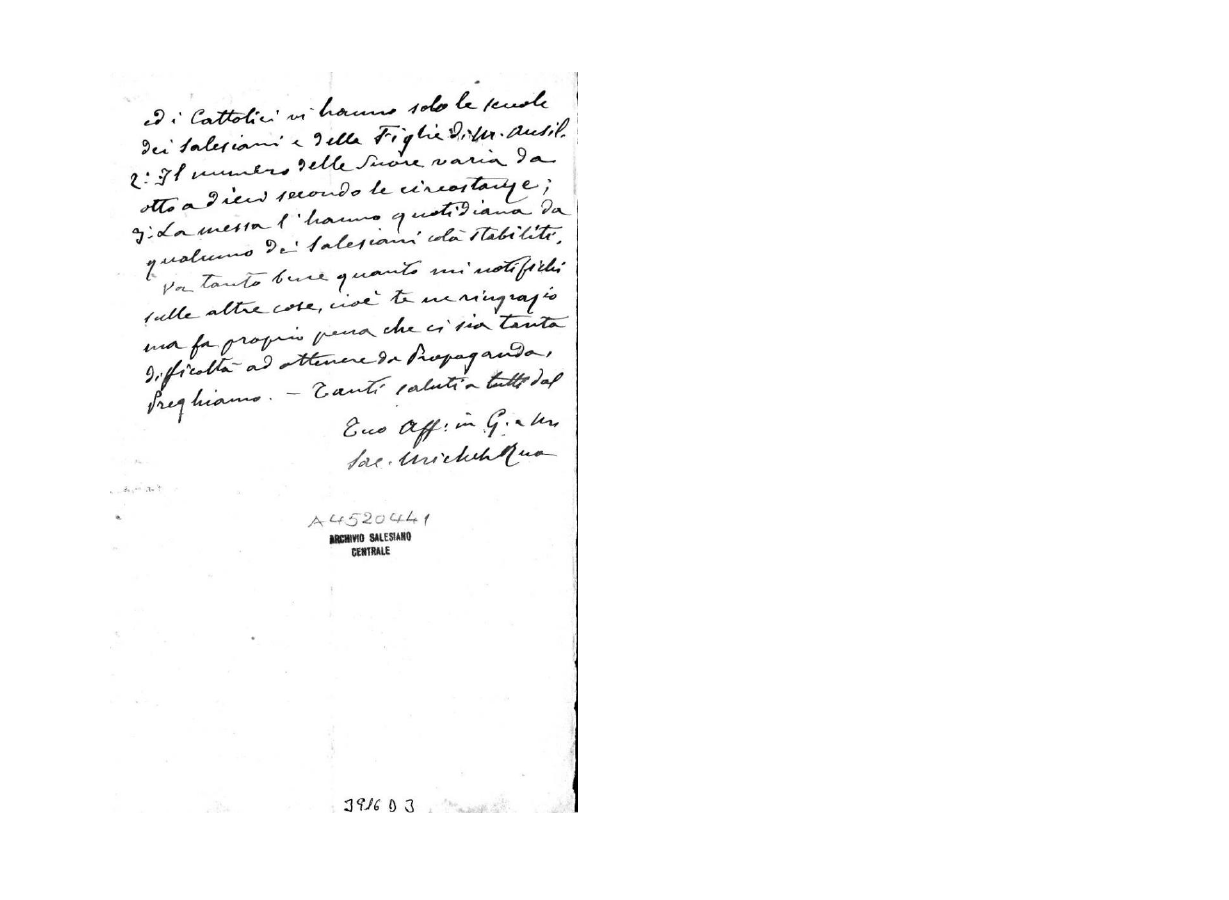 ed i Cattolici vi hanno solo le scuole
dei Salesiani e delle Figlie di M. Ausil.
2.° Il numero delle Suore varia da
otto a dieci secondo le circostanze;
3.° La messa l'hanno quotidiana da
qualcuno dei Salesiani colà stabiliti.
Va tanto bene quanto mi notifichi
sulle altre cose, cioè te ne ringrazio
ma fa proprio pena che ci sia tanta
difficoltà ad ottenere da Propaganda.
Preghiamo. – Tanti saluti a tutti dal
Tuo Aff: in G. e M.
Sac. Michele Rua
A4520441
ARCHIVIO SALESIANO
CENTRALE
3916 D 3